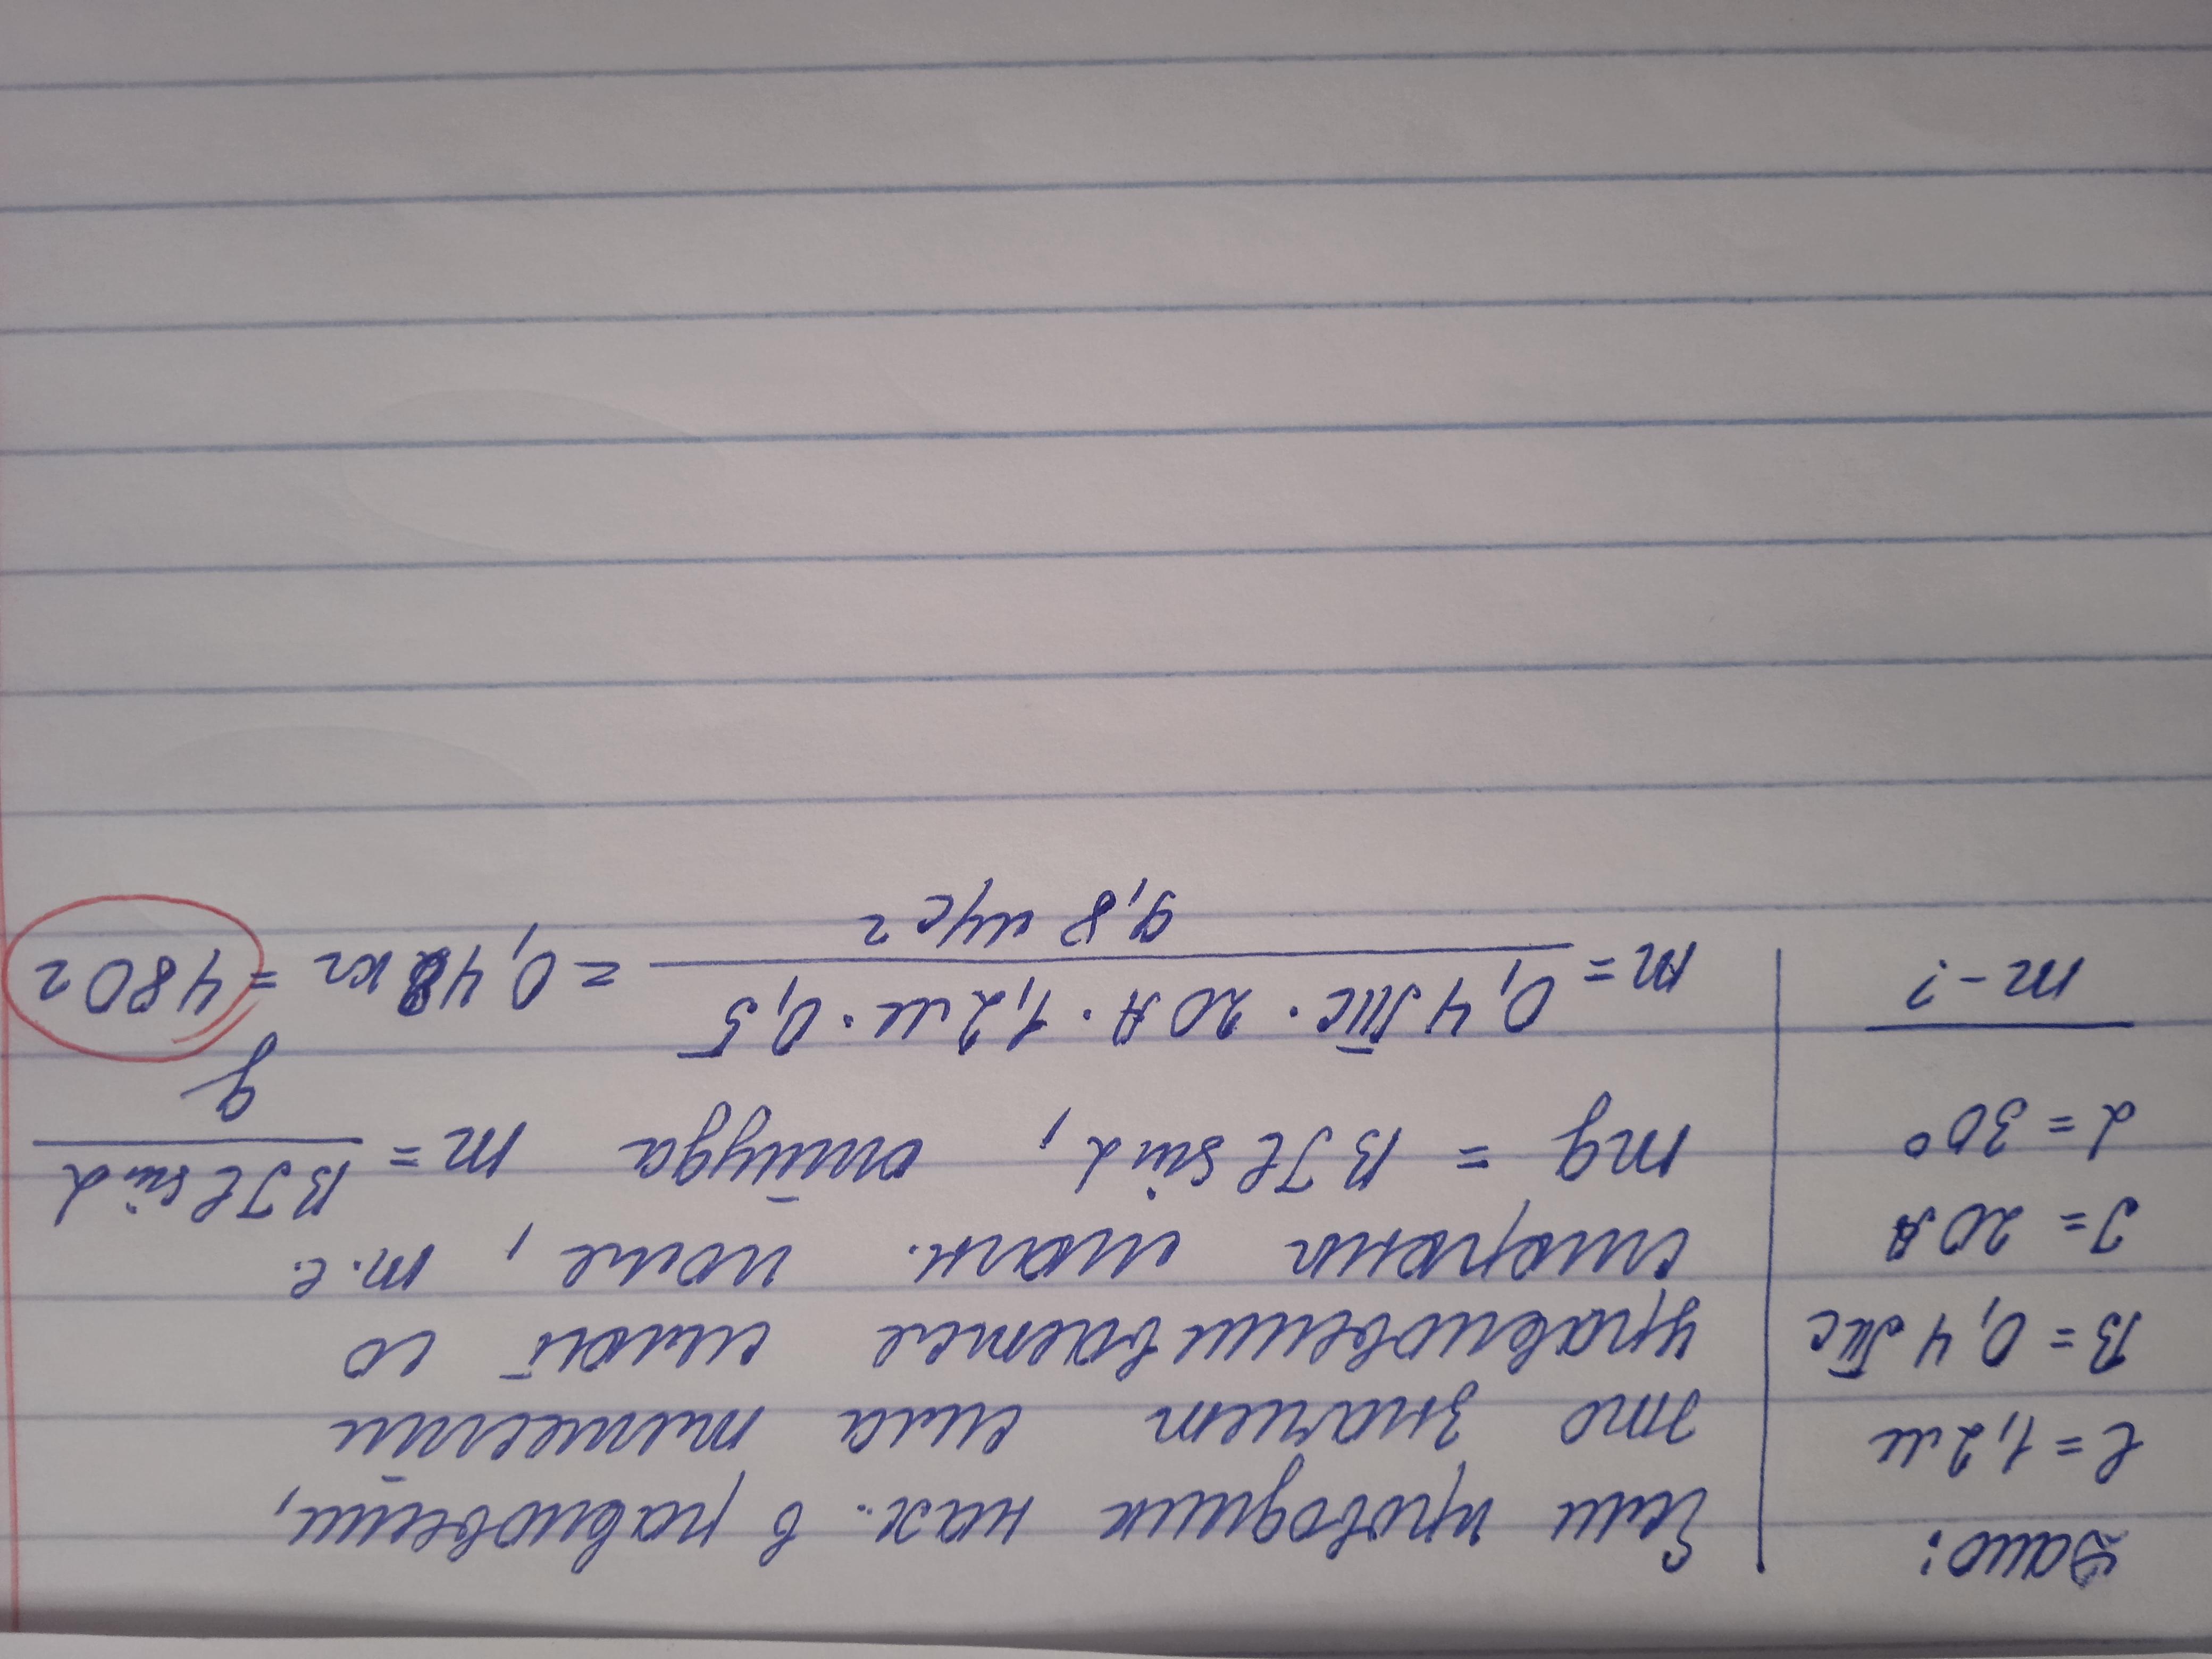 Дано:
l = 1,2 м
B = 0,4 Тлс
I = 20 А
α = 30°
m - ?
Если проводник нах. в равновесии,
это значит сила тяжести
уравновешивается силой со
стороны магн. поля, т.е.
mg = BIl sin α, откуда m = BIl sin α / g
m = 0,4 Тлс · 20 А · 1,2 м · 0,5 / 9,8 м/с² = 0,48 кг = 480 г